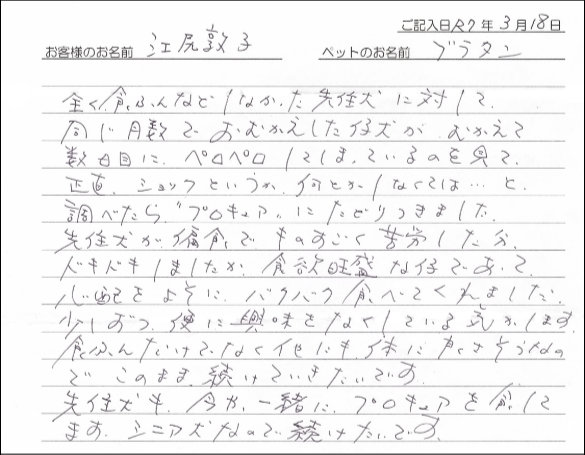 ご記入日 R7年3月18日
お客様のお名前 江尻敦子 ペットのお名前 ブラタン
全く食ふんなどしなかった先住犬に対して、
同じ月数でおむかえした仔犬が、むかえて
数日目に、ペロペロしてしまっているのを見て、
正直、ショックというか、何とかしなくては…と、
調べたら"プロキュア"にたどりつきました。
先住犬が偏食でものすごく苦労した分、
ドキドキしましたが、食欲旺盛な仔であって、
心配をよそに、バクバク食べてくれました。
少しずつ、便に興味をなくしている気がします
食ふんだけでなく他にも、体に良さそうなの
で、このまま、続けていきたいです。
先住犬も、今や、一緒に、プロキュアを食して
ます。シニア犬なので続けたいです。